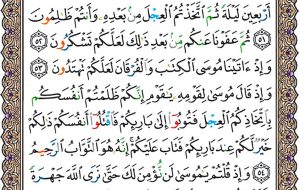 أَرْبَعِينَ لَيْلَةً ثُمَّ اتَّخَذْتُمُ الْعِجْلَ مِنۢ بَعْدِهِ وَأَنتُمْ ظَٰلِمُونَ
٥١ ثُمَّ عَفَوْنَا عَنكُم مِّنۢ بَعْدِ ذَٰلِكَ لَعَلَّكُمْ تَشْكُرُونَ ٥٢
وَإِذْ ءَاتَيْنَا مُوسَى الْكِتَٰبَ وَالْفُرْقَانَ لَعَلَّكُمْ تَهْتَدُونَ ٥٣
وَإِذْ قَالَ مُوسَىٰ لِقَوْمِهِ يَٰقَوْمِ إِنَّكُمْ ظَلَمْتُمْ أَنفُسَكُم
بِاتِّخَاذِكُمُ الْعِجْلَ فَتُوبُوٓا إِلَىٰ بَارِئِكُمْ فَاقْتُلُوٓا أَنفُسَكُمْ ذَٰلِكُمْ
خَيْرٌ لَّكُمْ عِندَ بَارِئِكُمْ فَتَابَ عَلَيْكُمْ إِنَّهُ هُوَ التَّوَّابُ الرَّحِيمُ
٥٤ وَإِذْ قُلْتُمْ يَٰمُوسَىٰ لَن نُّؤْمِنَ لَكَ حَتَّىٰ نَرَى اللَّهَ جَهْرَةً